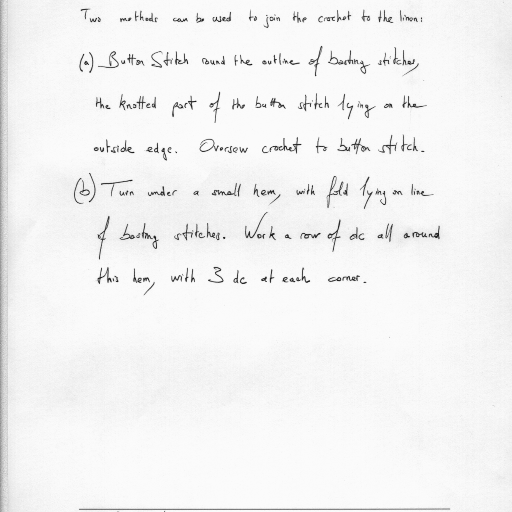 Two methods can be used to join the crochet to the linen:
(a) Button Stitch round the outline of basting stitches,
the knotted part of the button stitch lying on the
outside edge. Oversew crochet to button stitch.
(b) Turn under a small hem, with fold lying on line
of basting stitches. Work a row of dc all around
this hem, with 3 dc at each corner.